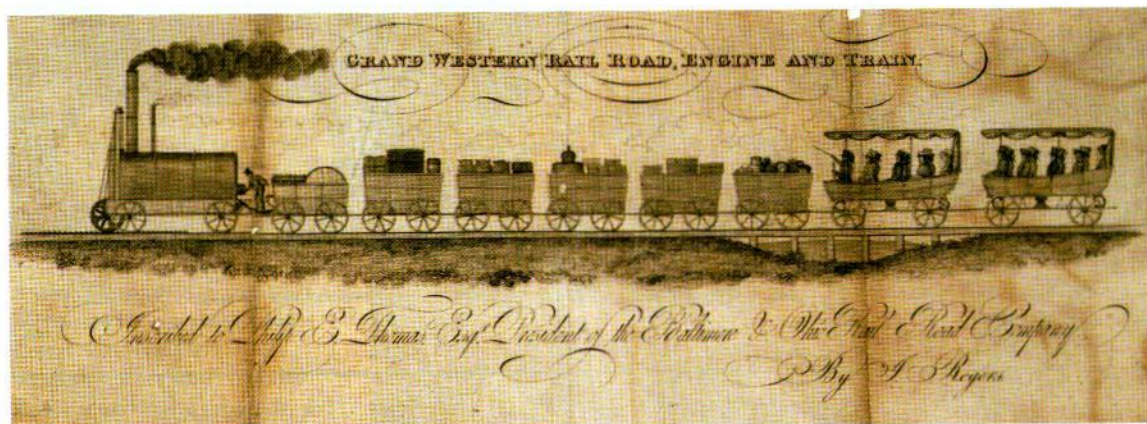 GRAND WESTERN RAIL ROAD, ENGINE AND TRAIN.
Inscribed to Philip E. Thomas Esqr. President of the Baltimore & Ohio Rail Road Company
By J. Rogers